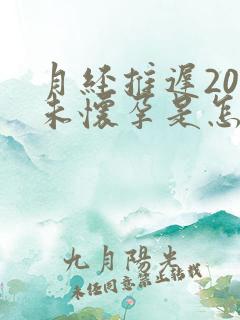 月经推遲20
未懷孕是怎
九月陽光
未经同意禁止转载